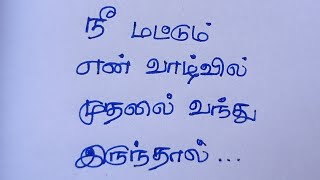 நீ மட்டும்
என் வாழ்வில்
முதலை வந்து
இருந்தால்...